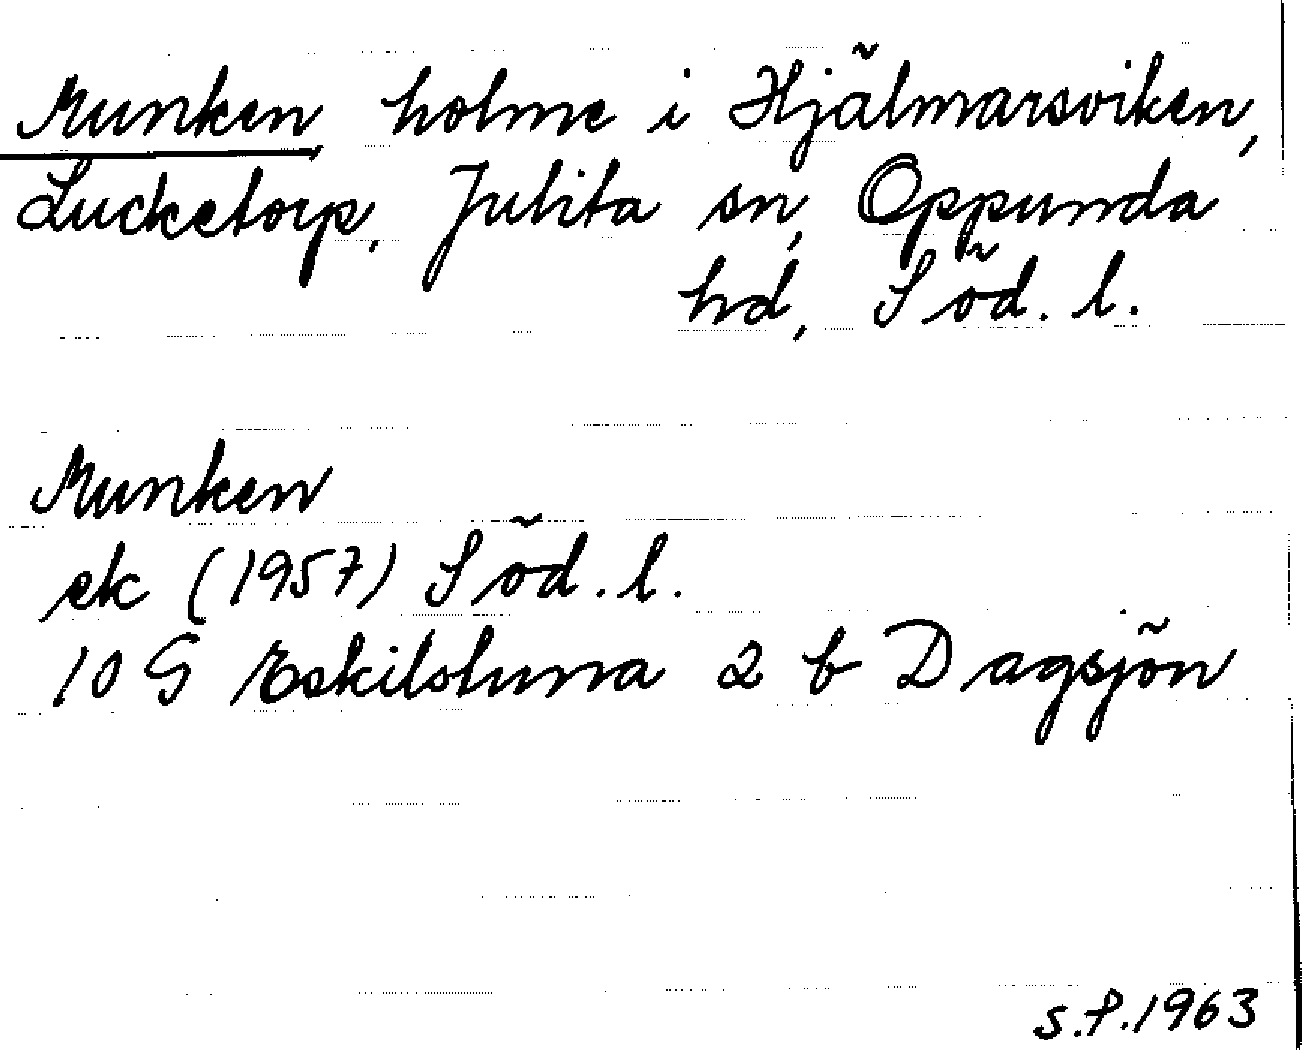 Munken, holme i Hjälmarsviken,
Lucketorp, Julita sn, Oppunda
hd, Söd. l.
Munken
ek (1957) Söd. l.
10 G Eskilstuna 2 b Dagsjön
S.P. 1963